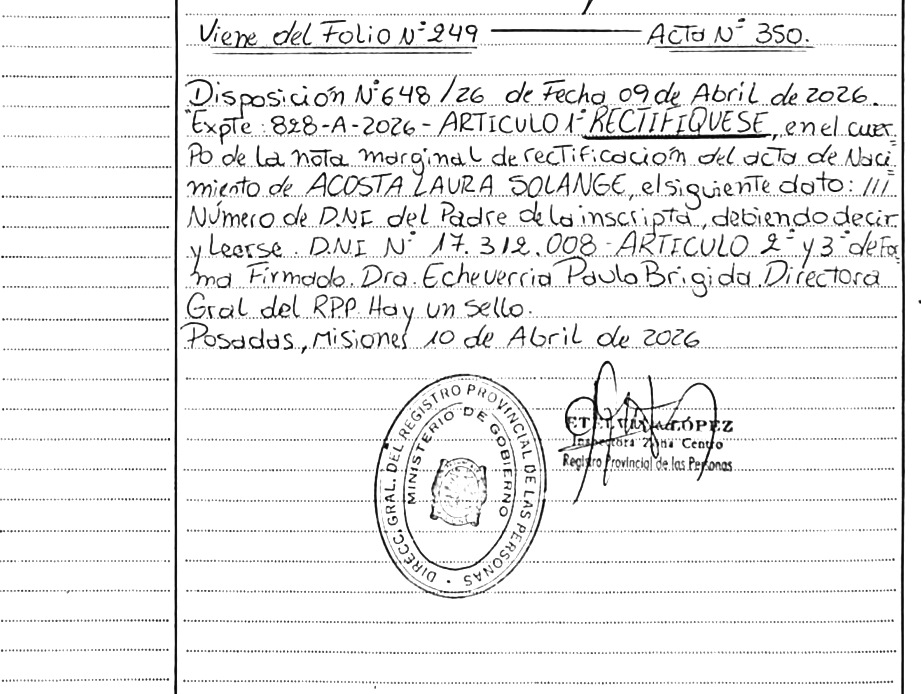 Viene del Folio N° 249 Acta N° 350.
Disposición N° 648/26 de Fecha 09 de Abril de 2026.
Expte: 828-A-2026 - ARTICULO 1° RECTIFIQUESE, en el cuer=
Po de la nota marginal de rectificación del acta de Naci=
miento de ACOSTA LAURA SOLANGE, el siguiente dato: ///
Número de D.N.I del Padre de la inscripta, debiendo decir
y Leerse. D.N.I N° 17.312.008 - ARTICULO 2° y 3° de For
ma Firmado. Dra. Echeverria Paula Brigida Directora
Gral del RPP. Hay un sello.
Posadas, Misiones 10 de Abril de 2026
DIRECC. GRAL. DEL REGISTRO PROVINCIAL DE LAS PERSONAS
MINISTERIO DE GOBIERNO
LÓPEZ
Inspectora Zona Centro
Registro Provincial de las Personas